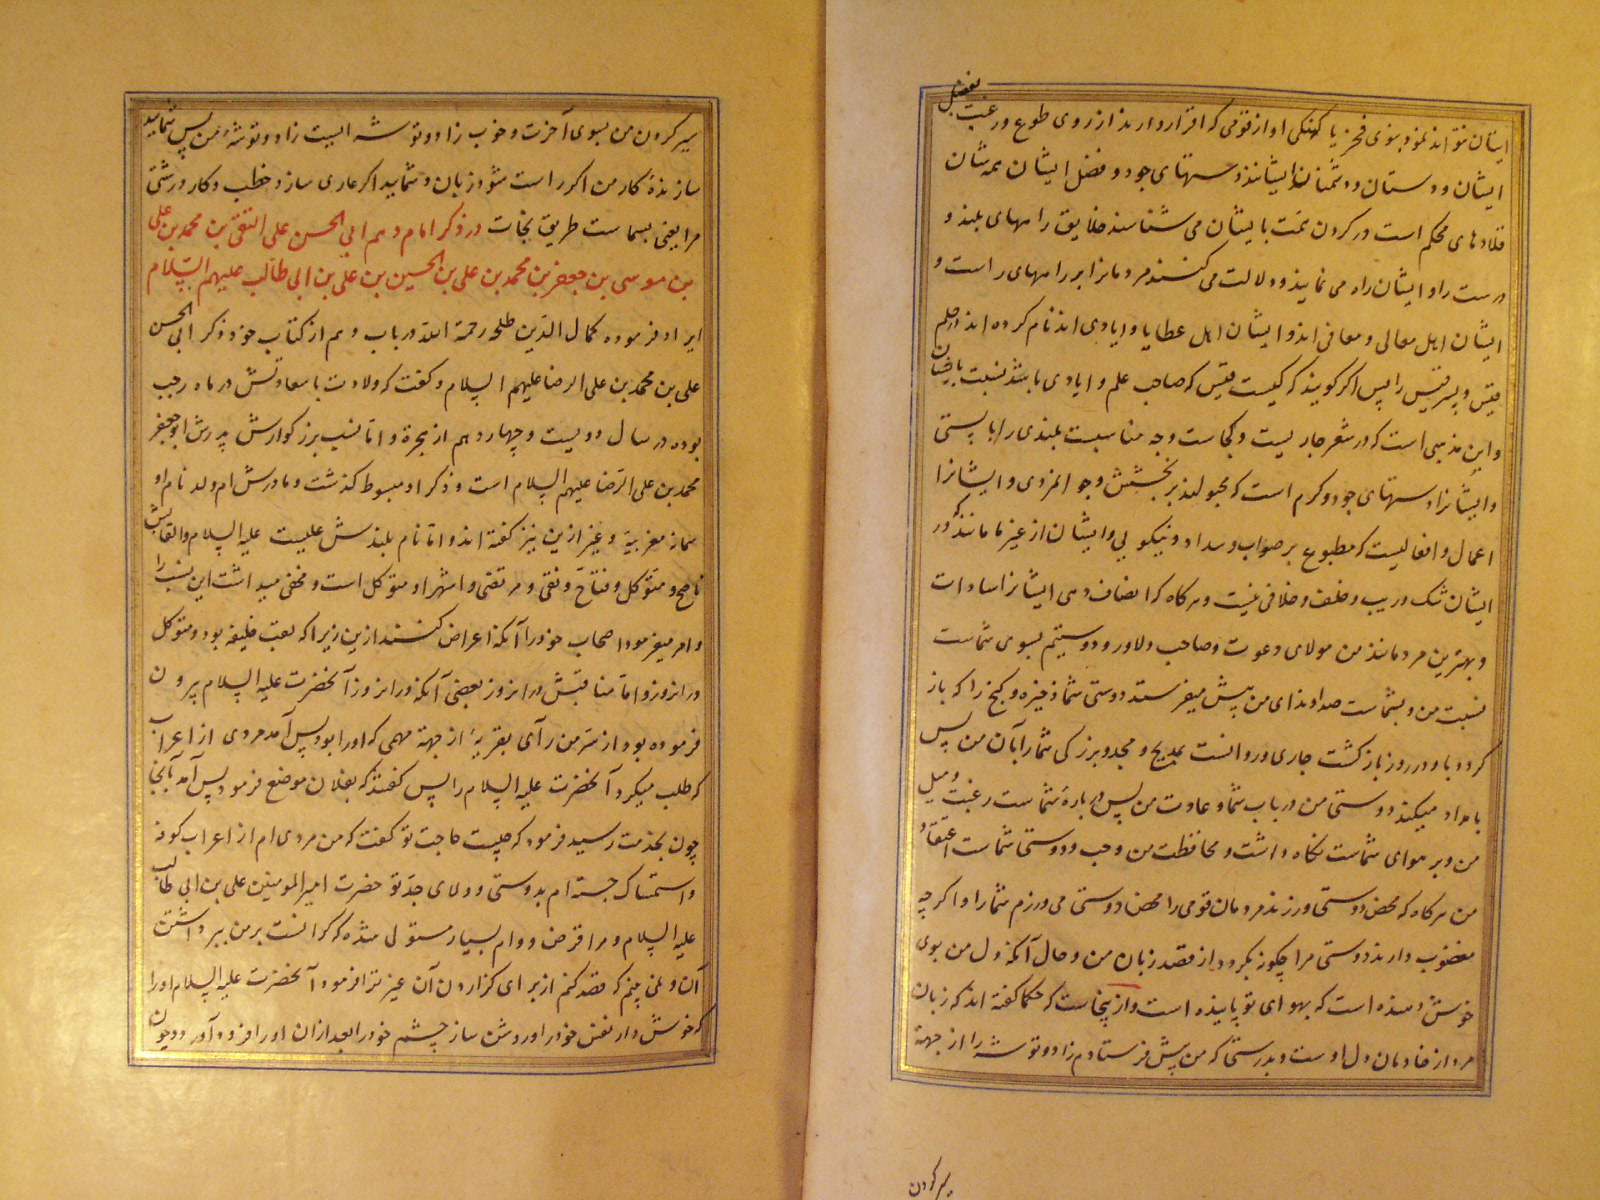 ایشان نتوانند نمود بسوی فخر یا کهنگی او از قومی که اقرار دارند از روی طوع و رغبت بفضل
ایشان و دوستان و دشمنان ایشانند دستهای جود و فضل ایشان همه شان
قلادهای محکم است در کردن نعمت بایشان می شناسند خلایق راههای بلند و
درست را و ایشان راه می نمایند و دلالت می کنند مردمانرا بر راههای راست و
ایشان اهل معالی و معانی اند و ایشان اهل عطایا و ایادی اند نام کرده اند در حلم
قیس و پسر قیس را پس اگر گویند که کیست قیس که صاحب علم و ایادی باشد نسبت بایشان
و این مذهبی است که در شعر جاریست و کجاست وجه مناسبت بلندی را با پستی
و ایشانراد ستهای جود و کرم است که مجبولند بر بخشش و جوانمردی و ایشانرا
اعمال و افعالیست که مطبوع بر صواب و سداد و نیکویی و ایشان از غیر ما مانند که در
ایشان شک و ریب و خلف و خلافی نیست و هرکاه که انصاف دهی ایشانرا سادات
و بهترین مردمانند من مولای دعوت و صاحب ولاور و دوستیم بسوی شماست
نسبت من و بشماست صداوندای من پیش میفرستد دوستی شما ذخیره و کنج را که باز
کردد باو در روز بازکشت جاری و روانست مدیح و مجد و بزرکی شما را آبان من پس
بامداد میکند دوستی من در باب شما و عادت من پس درباره شماست رغبت و میل
من و بر هوای شماست نکاه داشت و محافظت من و حب و دوستی شماست اعتقاد
من هرکاه که محض دوستی ورزند مردمان قومی را محض دوستی می ورزم شما را و اکرچه
مغضوب دارند دوستی مرا چکونه بکردد از قصد زبان من و حال آنکه دل من بوی
خوش دهنده است که بهوای تو پاینده است و از ینجاست که حکما کفته اند که زبان
مرد از خادمان دل اوست و بدرستی که من پیش فرستادم زاد و توشه را از جهة
سیر کردن
سیر کردن من بسوی آخرت و خوب زاد و توشه ایست زاد و توشهٔ من پس شمایید
سازندهٔ کار من اکر راست شود زبان و شمایید اکر عاری سازد خطب و کار درشتی
مرا یعنی بشماست طریق نجات در ذکر امام دهم ابی الحسن علی النقی بن محمد بن علی
بن موسی بن جعفر بن محمد بن علی بن الحسین بن علی بن ابی طالب علیهم السلام
ایراد فرموده کمال الدین طلحه رحمة الله در باب دهم از کتاب خود ذکر ابی الحسن
علی بن محمد بن علی الرضا علیهم السلام و کفت که ولادت با سعادتش در ماه رجب
بوده در سال دویست و چهاردهم از هجرة و اما نسب بزرکوارش پدرش ابوجعفر
محمد بن علی الرضا علیهم السلام است و ذکر او مبسوط کذشت و مادرش ام ولد نام او
سمانه مغربیه و غیر ازین نیز کفته اند و اما نام بلندش علیست علیه السلام و القابش
ناصح و متوکل و فتاح و نقی و مرتضی و اشهر او متوکل است و مخفی میداشت این نسب را
و امر میفرمود اصحاب خود را آنکه اعراض کنند ازین زیرا که لقب خلیفه بود و متوکل
در انروز و اما مناقبش در انروز بعضی آنکه در انروز آنحضرت علیه السلام بیرون
فرموده بود از سر من رآی بقریهٔ از جهة مهمی که او را بود پس آمد مردی از اعراب
که طلب میکرد آنحضرت علیه السلام را پس کفتند که بفلان موضع فرمود پس آمد بآنجا
چون بخدمت رسید فرمود که چیست حاجت تو کفت که من مردی ام از اعراب کوفه
و استمساک جسته ام بدوستی و ولای جد تو حضرت امیر المومنین علی بن ابی طالب
علیه السلام و مرا قرض و وام بسیار مستولی شده که کرانست بر من برداشتن
آن و نمی بینم که قصد کنم از برای کزاردن آن غیر ترا فرمود آنحضرت علیه السلام او را
که خوش دار نفس خود را و روشن ساز چشم خود را بعد از ان او را فرود آورد و چون